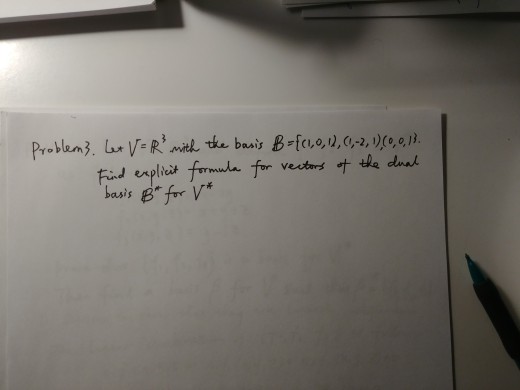 Problem 3. Let V = ℝ³ with the basis B = {(1,0,1), (1,-2,1)(0,0,1}.
Find explicit formula for vectors of the dual
basis B* for V*